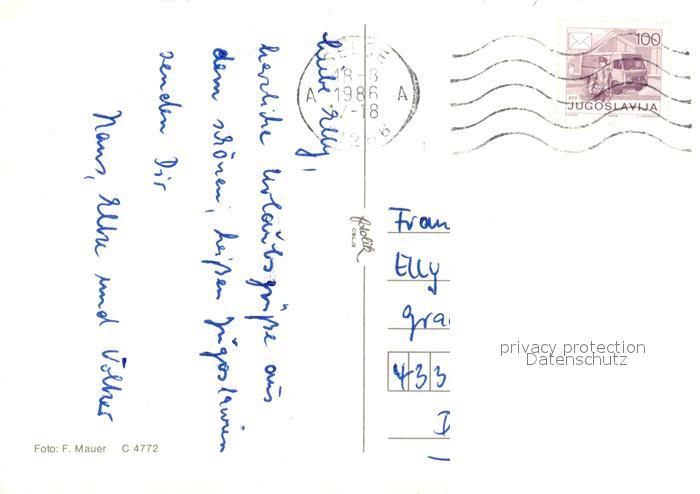 Liebe Elly,
herzliche Urlaubsgrüße aus
dem schönen, heißen Jugoslawien
senden Dir
Hans, Elke und Volker
Foto: F. Mauer C 4772
fotolik
CELJE
18-8
A 1986 A
-18
100
PTT
JUGOSLAVIJA
Frau
Elly
433
privacy protection
Datenschutz